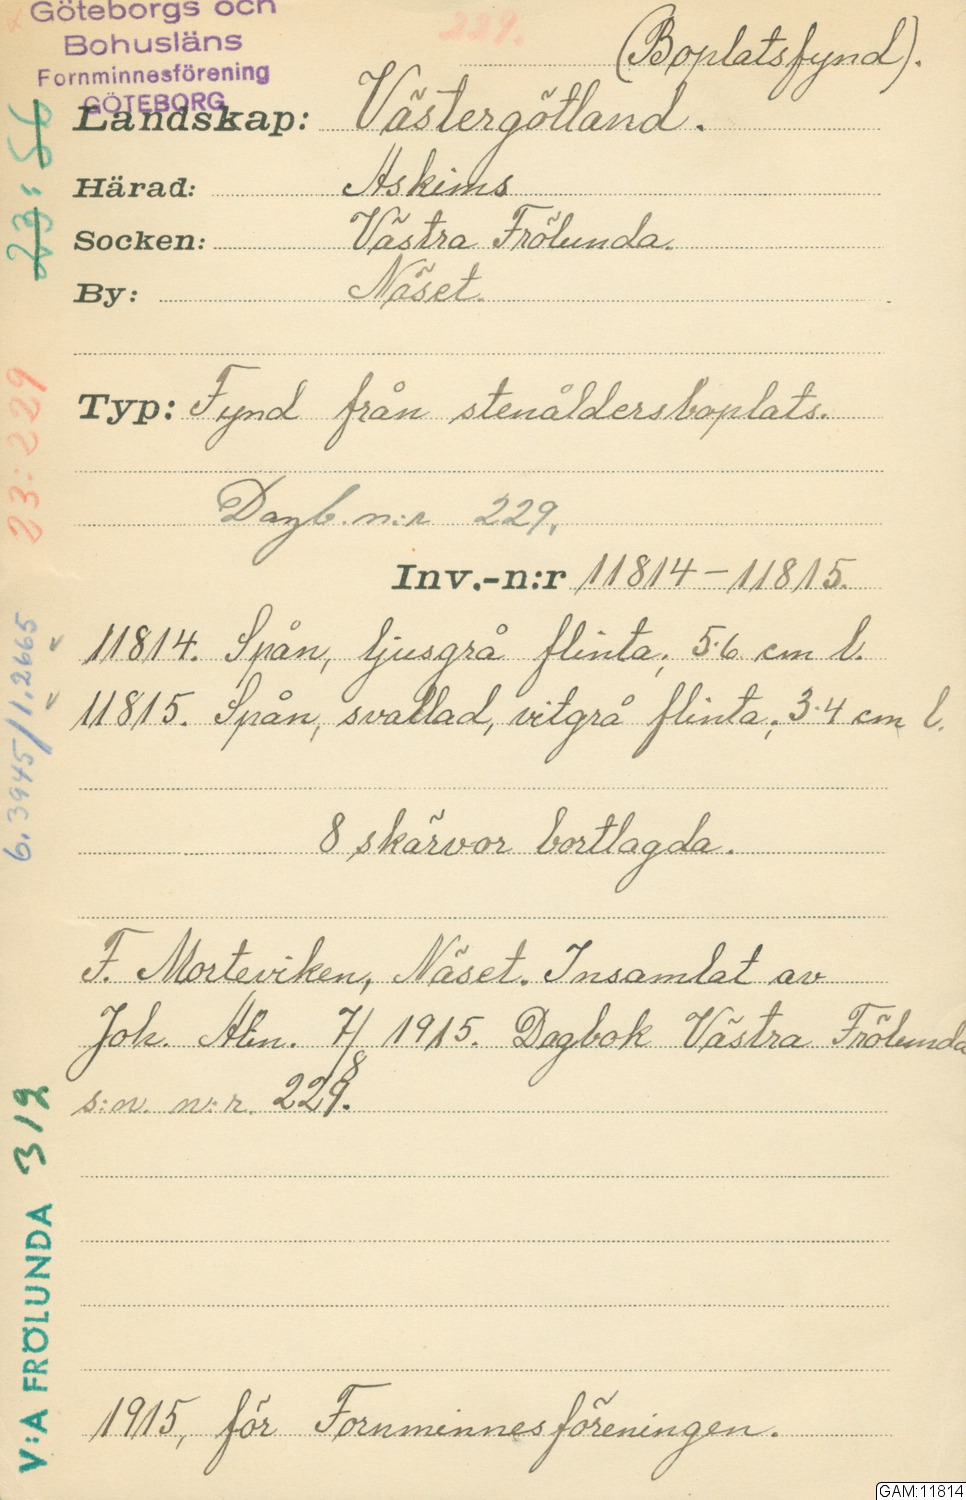 Göteborgs och
Bohusläns
Fornminnesförening
GÖTEBORG
229.
(Boplatsfynd).
Landskap: Västergötland.
Härad: Askims
Socken: Västra Frölunda.
By: Näset.
Typ: Fynd från stenåldersboplats.
Dagb. n:r 229.
Inv.-n:r 11814-11815.
11814. Spån, ljusgrå flinta; 5.6 cm l.
11815. Spån, svallad, vitgrå flinta; 3.4 cm l.
8 skärvor bortlagda.
F. Morteviken, Näset. Insamlat av
Joh. Alin. 7/8 1915. Dagbok Västra Frölunda
s:n. n:r. 229.
1915, för Fornminnesföreningen.
23:56
23:229
6.3945/1.2665
V:A FRÖLUNDA 312
GAM:11814